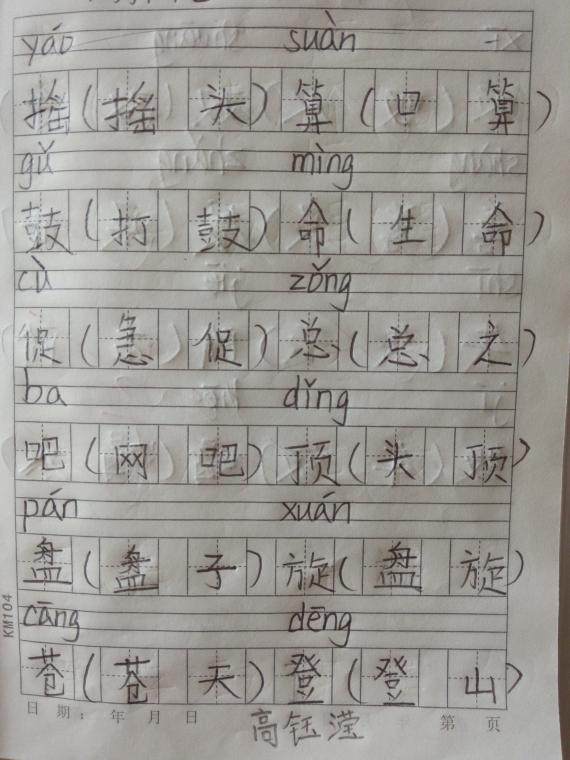 yáo suàn
摇(摇头)算(口算)
gǔ mìng
鼓(打鼓)命(生命)
cù zǒng
促(急促)总(总之)
ba dǐng
吧(网吧)顶(头顶)
pán xuán
盘(盘子)旋(盘旋)
cāng dēng
苍(苍天)登(登山)
日 期： 年 月 日 第 页
高钰滢
KM104